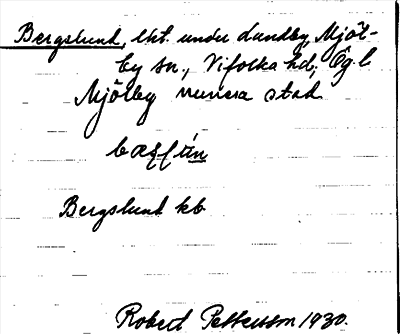 Bergslund, lht. under Lundby, Mjöl-
by sn., Vifolka hd; Ög. l
Mjölby numera stad
Bergslund kb
Robert Pettersson 1930.